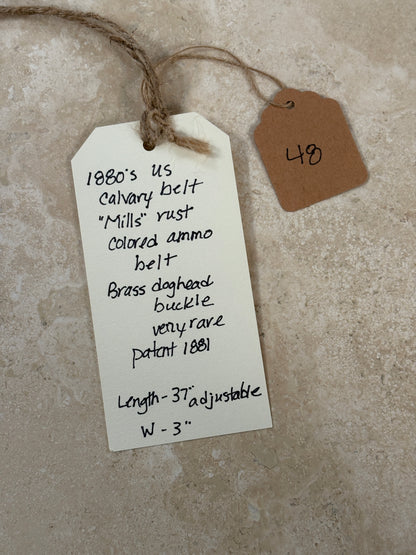 1880's US
Calvary belt
"Mills" rust
colored ammo
belt
Brass doghead
buckle
very rare
patent 1881
Length - 37" adjustable
W - 3"
48